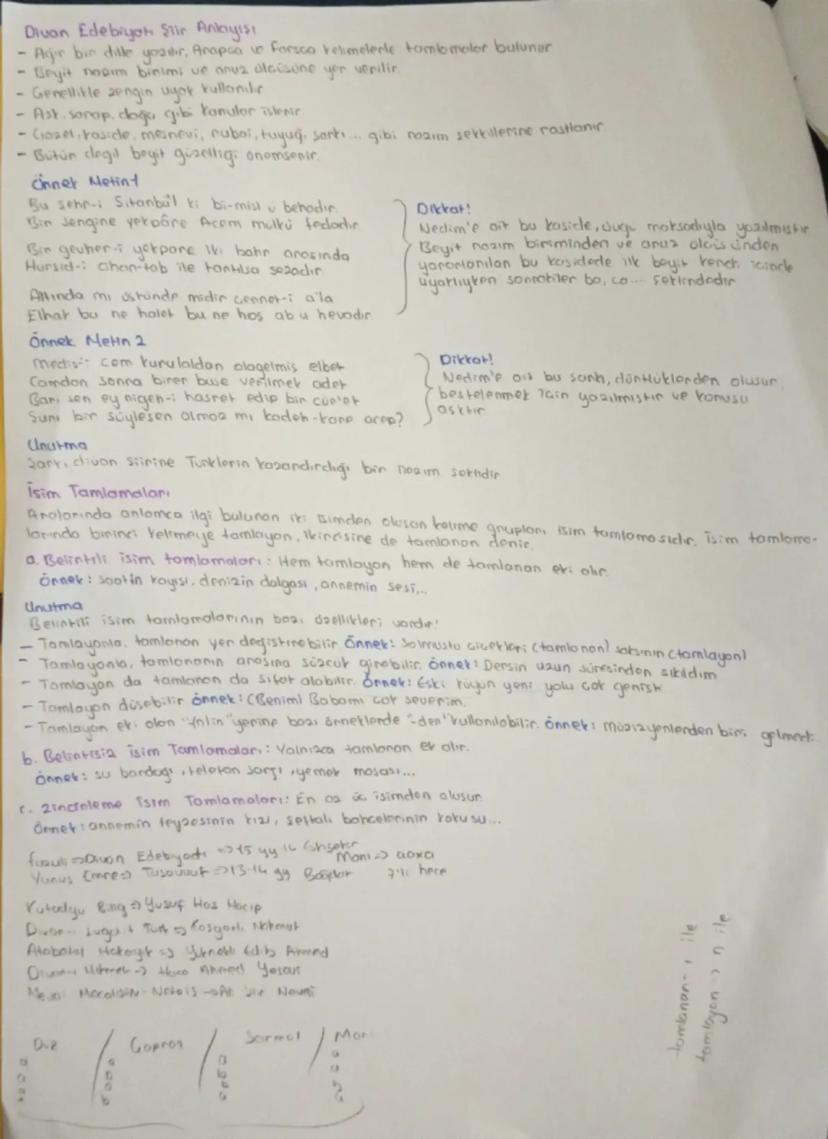 Divan Edebiyatı Şiir Anlayışı
- Ağır bir dille yazılır, Arapça ve Farsça kelimelerle tamlamalar bulunur
- Beyit nazım birimi ve aruz ölçüsüne yer verilir.
- Genellikle zengin uyak kullanılır
- Aşk, şarap, doğa gibi konular işlenir
- Gazel, kaside, mesnevi, rubai, tuyuğ, şarkı... gibi nazım şekillerine rastlanır
- Bütün değil beyit güzelliği önemsenir.
Örnek Metin 1
Bu şehr-i Sitanbul ki bi-misl ü behadır
Bir sengine yekpâre Acem mülkü fedadır
Bir gevher-i yekpare iki bahr arasında
Hurşid-i cihan-tab ile tartılsa sezadır
Altında mı üstünde midir cennet-i a'la
Elhak bu ne halet bu ne hoş ab u hevadır
Dikkat!
Nedim'e ait bu kaside, övgü maksadıyla yazılmıştır
Beyit nazım biriminden ve aruz ölçüsünden
yararlanılan bu kasidede ilk beyit kendi içinde
uyaklıyken sonrakiler ba, ca... şeklindedir
Örnek Metin 2
cem kurulaldan olagelmiş elbet
Camdan sonra birer buse verilmek adet
sen ey nigeh-i hasret edip bir
Şunu bir söylesen olmaz mı kadeh-kara acep?
Dikkat!
Nedim'e ait bu şarkı, dörtlüklerden oluşur,
bestelenmek için yazılmıştır ve konusu
aşktır
Unutma
Şarkı, divan şiirine Türklerin kazandırdığı bir nazım şeklidir
İsim Tamlamaları
Aralarında anlamca ilgi bulunan iki isimden oluşan kelime grupları isim tamlamasıdır. İsim tamlama-
larında birinci kelimeye tamlayan, ikincisine de tamlanan denir.
a. Belirtili isim tamlamaları: Hem tamlayan hem de tamlanan eki alır.
Örnek: saatin kayışı, denizin dalgası, annemin sesi,...
Unutma
Belirtili isim tamlamalarının bazı özellikleri vardır!
- Tamlayanla, tamlanan yer değiştirebilir Örnek: Solmuştu çiçekleri (tamlanan) saksının (tamlayan)
- Tamlayanla, tamlananın arasına sözcük girebilir. Örnek: Dersin uzun süresinden sıkıldım
- Tamlayan da tamlanan da sıfat alabilir. Örnek: Eski köyün yeni yolu çok genişti
- Tamlayan düşebilir Örnek: (Benim) Babamı çok severim.
- Tamlayan eki olan "ın/in" yerine bazı örneklerde "-den" kullanılabilir. Örnek: müzisyenlerden biri gelmedi.
b. Belirtisiz İsim Tamlamaları: Yalnızca tamlanan ek alır.
Örnek: su bardağı, telefon şarjı, yemek masası...
c. Zincirleme İsim Tamlamaları: En az üç isimden oluşur
Örnek: annemin teyzesinin kızı, şeftali bahçelerinin kokusu...
Fuzuli => Divan Edebiyatı => 15 yy 16
Mani => aaxa
Yunus Emre => Tasavvuf => 13-14 yy
7'li hece
Kutadgu Bilig => Yusuf Has Hacip
Divan-ı Lugati't Türk => Kaşgarlı Mahmut
Atabetül Hakayık => Yükneki Edip Ahmed
Divan-ı Hikmet -> Hoca Ahmed Yesevi
Mecalisün-Nefais -> Ali Şir Nevai
Düz / Çapraz / Sarmal / Mani
tamlanan - ı ile
tamlayan -> n ile